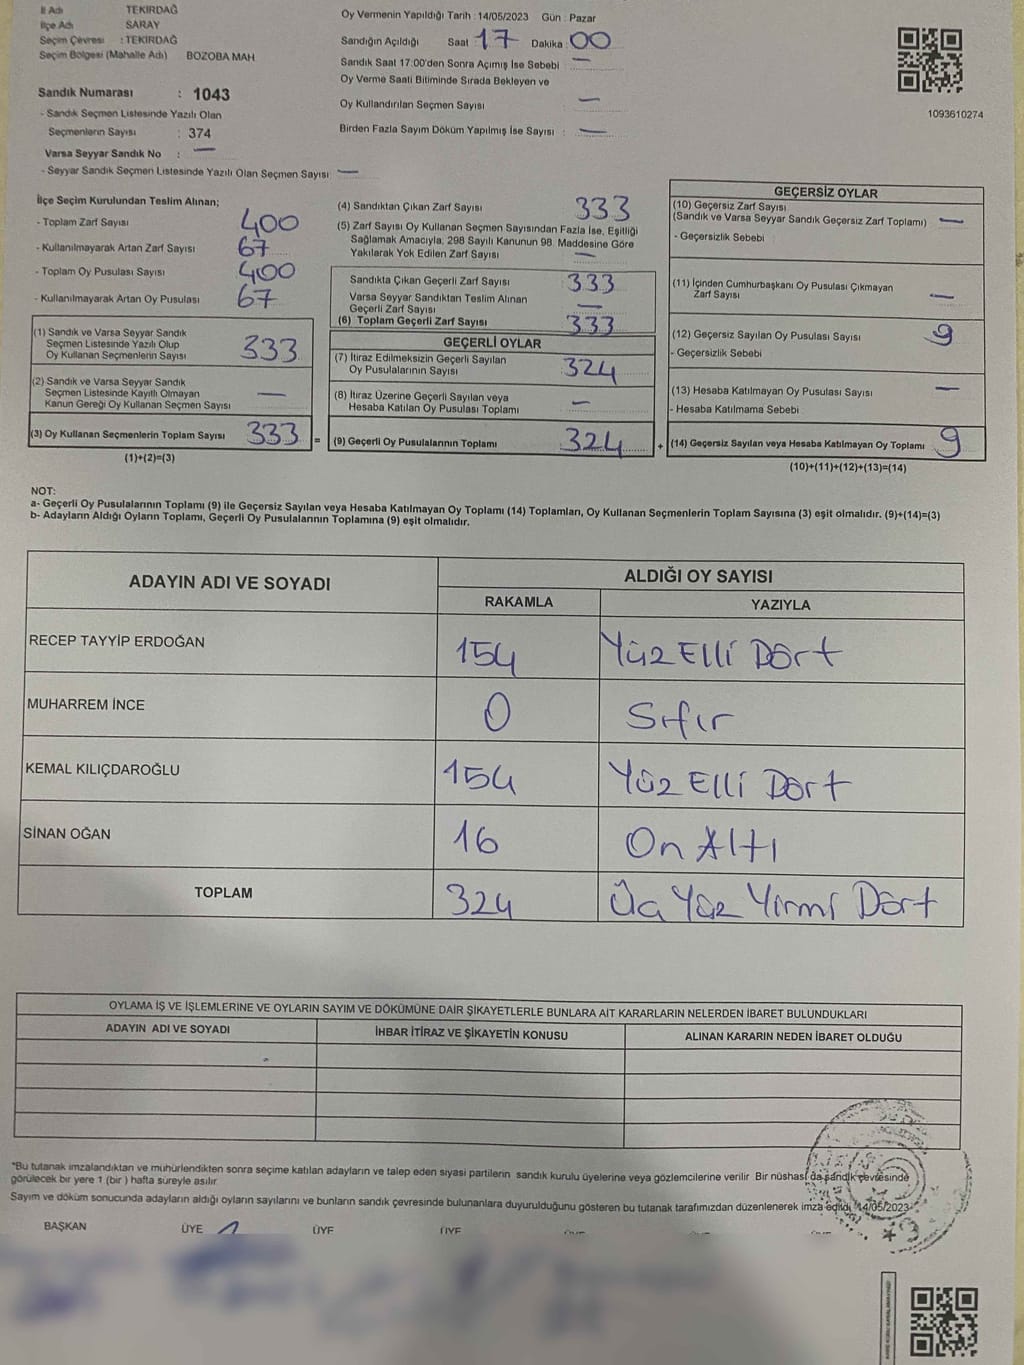 İl Adı TEKİRDAĞ
İlçe Adı SARAY
Seçim Çevresi : TEKİRDAĞ
Seçim Bölgesi (Mahalle Adı) BOZOBA MAH
Sandık Numarası : 1043
- Sandık Seçmen Listesinde Yazılı Olan
Seçmenlerin Sayısı : 374
Varsa Seyyar Sandık No : —
- Seyyar Sandık Seçmen Listesinde Yazılı Olan Seçmen Sayısı: —
Oy Vermenin Yapıldığı Tarih : 14/05/2023 Gün : Pazar
Sandığın Açıldığı Saat : 17 Dakika : 00
Sandık Saat 17:00'den Sonra Açımış İse Sebebi —
Oy Verme Saati Bitiminde Sırada Bekleyen ve
Oy Kullandırılan Seçmen Sayısı —
Birden Fazla Sayım Döküm Yapılmış İse Sayısı : —
1093610274
İlçe Seçim Kurulundan Teslim Alınan;
- Toplam Zarf Sayısı 400
- Kullanılmayarak Artan Zarf Sayısı 67
- Toplam Oy Pusulası Sayısı 400
- Kullanılmayarak Artan Oy Pusulası 67
(1) Sandık ve Varsa Seyyar Sandık
Seçmen Listesinde Yazılı Olup
Oy Kullanan Seçmenlerin Sayısı 333
(2) Sandık ve Varsa Seyyar Sandık
Seçmen Listesinde Kayıtlı Olmayan
Kanun Gereği Oy Kullanan Seçmen Sayısı —
(3) Oy Kullanan Seçmenlerin Toplam Sayısı 333 =
(1)+(2)=(3)
(4) Sandıktan Çıkan Zarf Sayısı 333
(5) Zarf Sayısı Oy Kullanan Seçmen Sayısından Fazla İse, Eşitliği
Sağlamak Amacıyla; 298 Sayılı Kanunun 98. Maddesine Göre
Yakılarak Yok Edilen Zarf Sayısı —
Sandıkta Çıkan Geçerli Zarf Sayısı 333
Varsa Seyyar Sandıktan Teslim Alınan
Geçerli Zarf Sayısı —
(6) Toplam Geçerli Zarf Sayısı 333
GEÇERLİ OYLAR
(7) İtiraz Edilmeksizin Geçerli Sayılan
Oy Pusulalarının Sayısı 324
(8) İtiraz Üzerine Geçerli Sayılan veya
Hesaba Katılan Oy Pusulası Toplamı —
(9) Geçerli Oy Pusulalarının Toplamı 324 +
GEÇERSİZ OYLAR
(10) Geçersiz Zarf Sayısı
(Sandık ve Varsa Seyyar Sandık Geçersiz Zarf Toplamı) —
- Geçersizlik Sebebi
(11) İçinden Cumhurbaşkanı Oy Pusulası Çıkmayan
Zarf Sayısı —
(12) Geçersiz Sayılan Oy Pusulası Sayısı 9
- Geçersizlik Sebebi
(13) Hesaba Katılmayan Oy Pusulası Sayısı —
- Hesaba Katılmama Sebebi
(14) Geçersiz Sayılan veya Hesaba Katılmayan Oy Toplamı 9
(10)+(11)+(12)+(13)=(14)
NOT:
a- Geçerli Oy Pusulalarının Toplamı (9) ile Geçersiz Sayılan veya Hesaba Katılmayan Oy Toplamı (14) Toplamları, Oy Kullanan Seçmenlerin Toplam Sayısına (3) eşit olmalıdır. (9)+(14)=(3)
b- Adayların Aldığı Oyların Toplamı, Geçerli Oy Pusulalarının Toplamına (9) eşit olmalıdır.
ADAYIN ADI VE SOYADI ALDIĞI OY SAYISI
RAKAMLA YAZIYLA
RECEP TAYYİP ERDOĞAN 154 Yüz Elli Dört
MUHARREM İNCE 0 Sıfır
KEMAL KILIÇDAROĞLU 154 Yüz Elli Dört
SİNAN OĞAN 16 On Altı
TOPLAM 324 Üç Yüz Yirmi Dört
OYLAMA İŞ VE İŞLEMLERİNE VE OYLARIN SAYIM VE DÖKÜMÜNE DAİR ŞİKAYETLERLE BUNLARA AİT KARARLARIN NELERDEN İBARET BULUNDUKLARI
ADAYIN ADI VE SOYADI İHBAR İTİRAZ VE ŞİKAYETİN KONUSU ALINAN KARARIN NEDEN İBARET OLDUĞU
*Bu tutanak imzalandıktan ve mühürlendikten sonra seçime katılan adayların ve talep eden siyasi partilerin sandık kurulu üyelerine veya gözlemcilerine verilir. Bir nüshası da sandık çevresinde
görülecek bir yere 1 (bir ) hafta süreyle asılır
Sayım ve döküm sonucunda adayların aldığı oyların sayılarını ve bunların sandık çevresinde bulunanlara duyurulduğunu gösteren bu tutanak tarafımızdan düzenlenerek imza edildi. 14/05/2023
BAŞKAN ÜYE ÜYE ÜYE